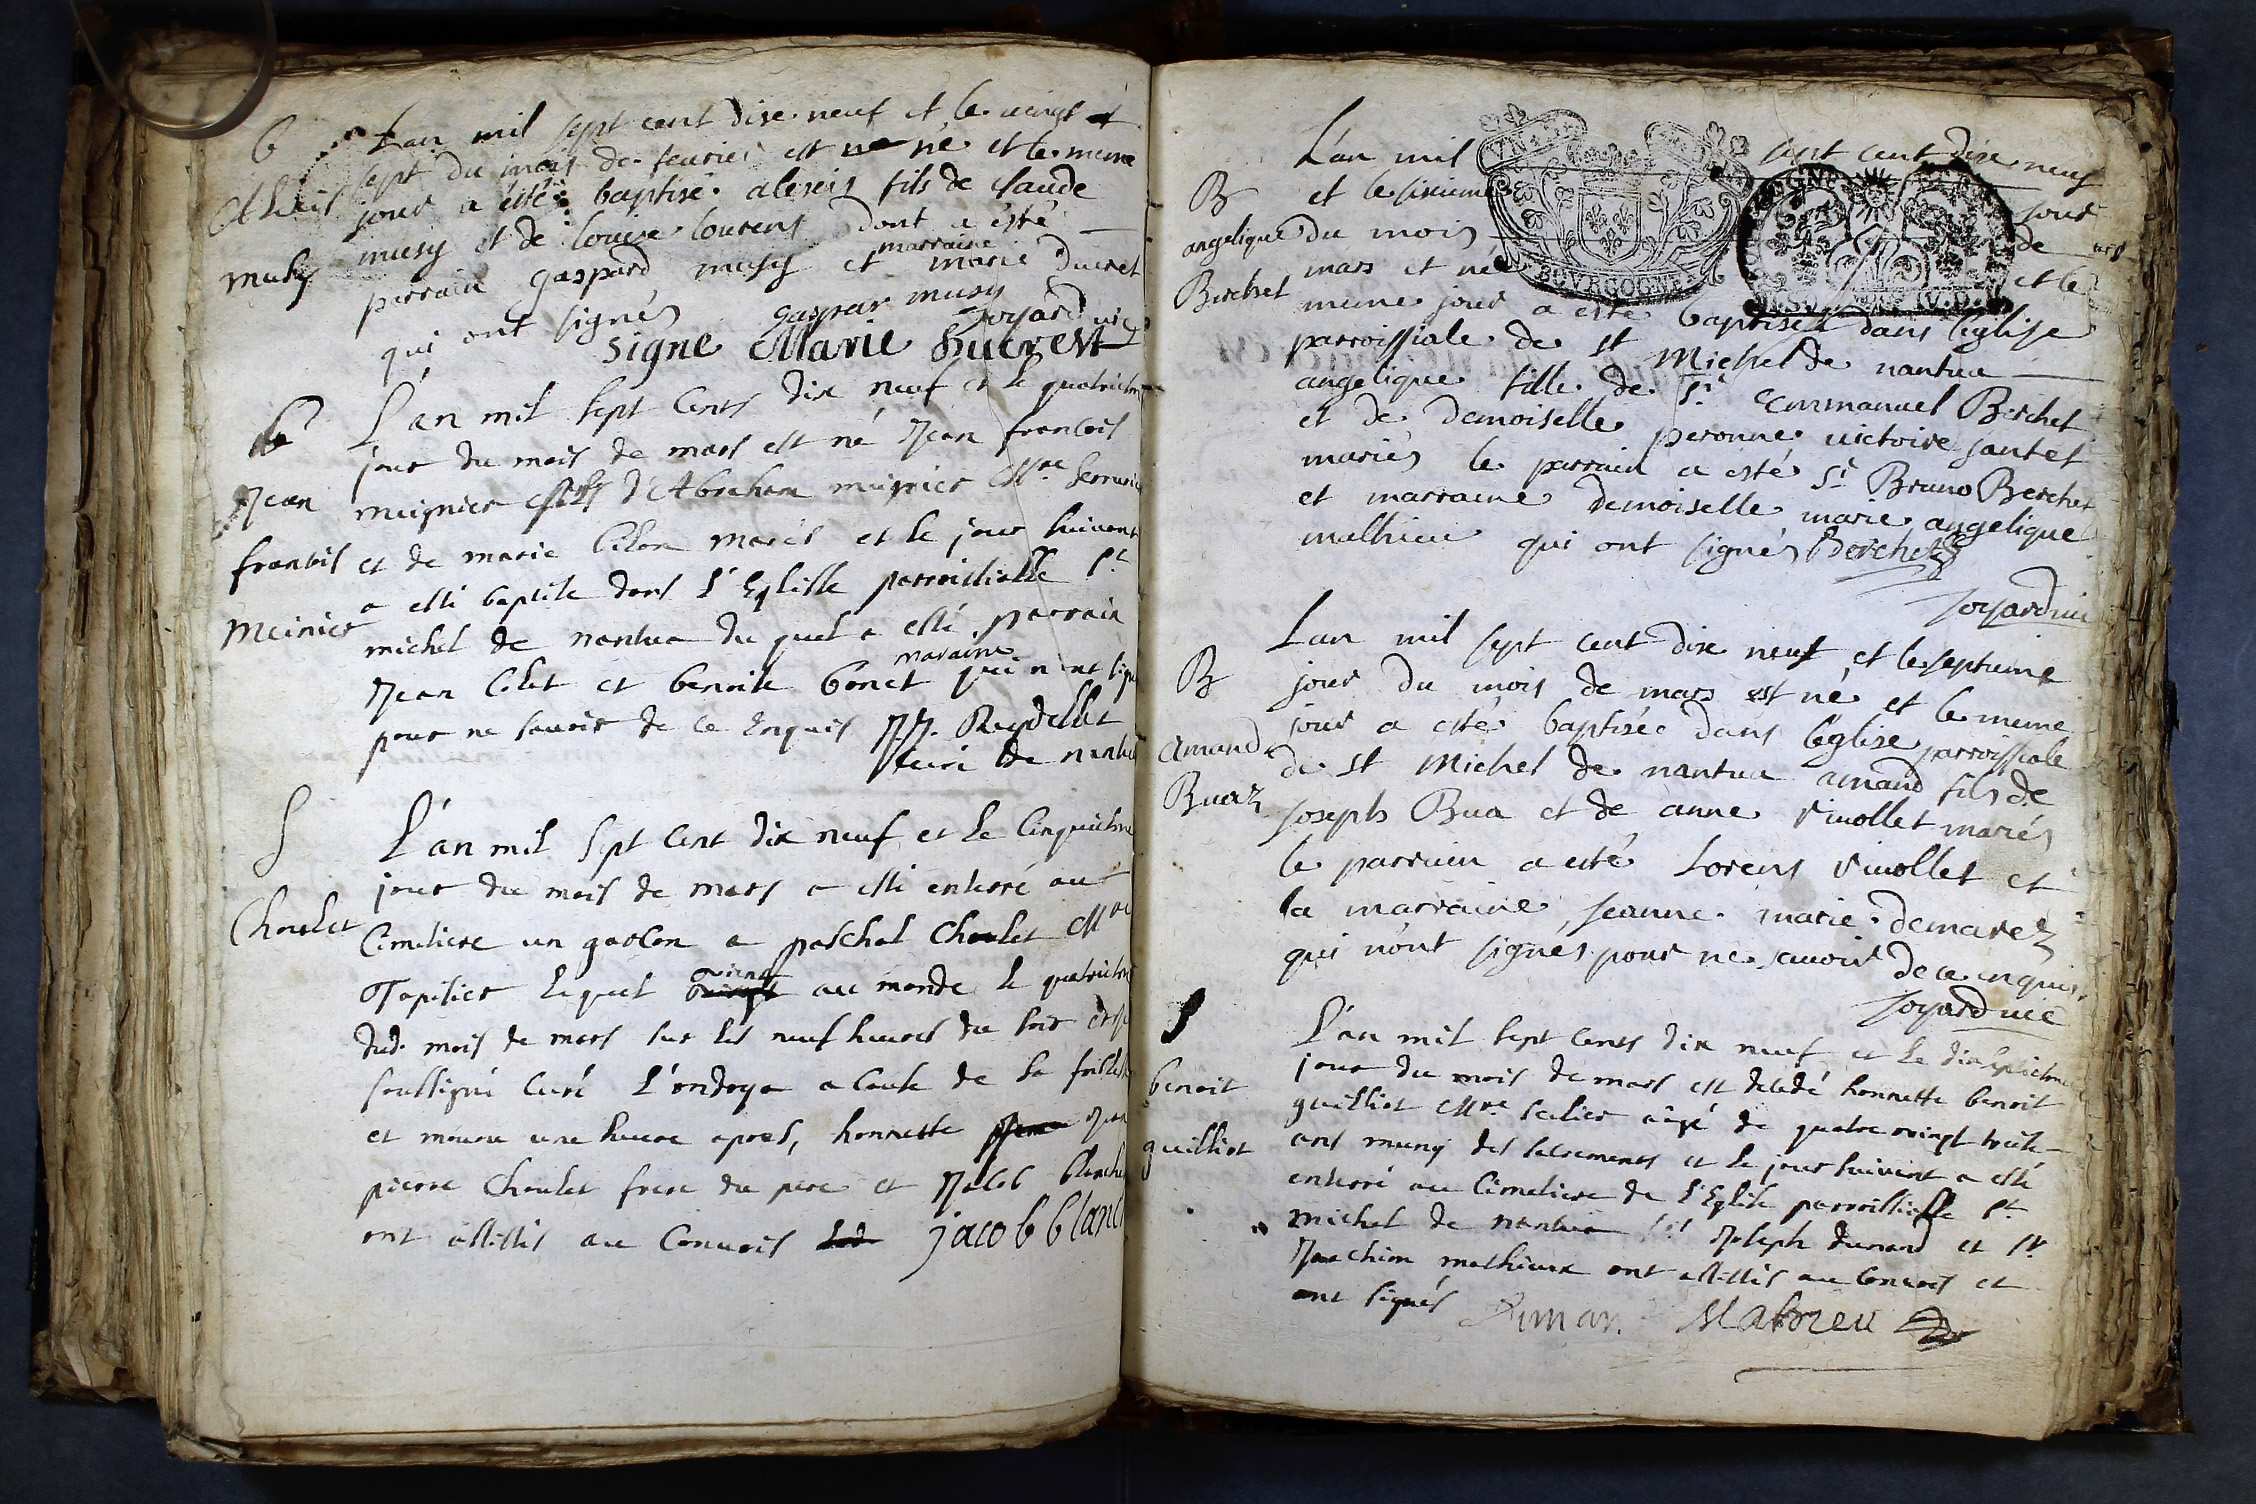 B
L'an mil sept cent dixe neuf et le vingt et
sept du mois de feurier est né et le meme
Alexis
jour a été baptisé alexeis fils de claude
musy et de louise lourens dont a été
musy
parrain gaspard musy et marraine marie ducret
qui ont signés gaspar musy Joyard vic
signe Marie Ducrest
b
L'an mil sept Cents dix neuf et le quatrieme
jour du mois de mars est né Jean francois
Jean
meignier fils d'Abraham meignier Mre serrurier
francois
et de marie mariés et le jour suivant
a esté baptisé dans l'Eglisse parroissialle St
Meinier
michel de nantua du quel a esté parrain
Jean Colet et benoite bonet maraine qui n'ont signé
pour ne savoir de ce Enquis JJ. Reydellet
curé de nantua
S
L'an mil Sept Cent dix neuf et le Cinquieme
jour du mois de mars a esté enterré au
Choulet
Cimetiere un garcon a paschal Choulet Mre
Tapisier lequel vient au monde le quatrieme
dud. mois de mars sur les neuf heures du soir et je
soussigné curé l'ondoya a cause de sa foiblesse
et mouru une heure apres, honnette Jean
pierre Choulet frere du pere et Jacob blanche
ont assistés au Convois jacob blanc
L'an mil sept cent dixe neuf
B
et le sixieme jour
angelique
du mois de
Berchet
mars et née et le
meme jour a esté baptisée dans l'eglise
parroissiale de st Michel de nantua
angelique fille de Sr Emmanuel Berchet
et de demoiselle peronne victoire jantet
mariés le parrain a esté Sr Bruno Berchet
et marraine demoiselle marie angelique
mathieu qui ont signés Berchet
Joyard vic
L'an mil sept cent dixe neuf et le septieme
B
jour du mois de mars est né et le meme
jour a esté baptisée dans l'église parroissiale
Amand
de st Michel de nantua amand fils de
Buaz
Joseph Bua et de anne Vuollet mariés
le parrain a esté Lorens Vuollet et
la marraine Jeanne marie demarez
qui n'ont signés pour ne scavoir de ce enquis
Joyard vic
S
L'an mil sept Cents dix neuf et le dix septieme
benoit
jour du mois de mars est decedé honnette benoit
guilliot
guilliot Mre scelier aigé de quatre vingt huit
ans muny des sacrements et le jour suivant a esté
enterré au Cimetiere de l'Eglise parroissialle St
michel de nantua Sr Joseph dunand et Sr
Joachim mathieux ont assistés au Convois et
ont signés Dunan Mathieu
BOVRGOGNE